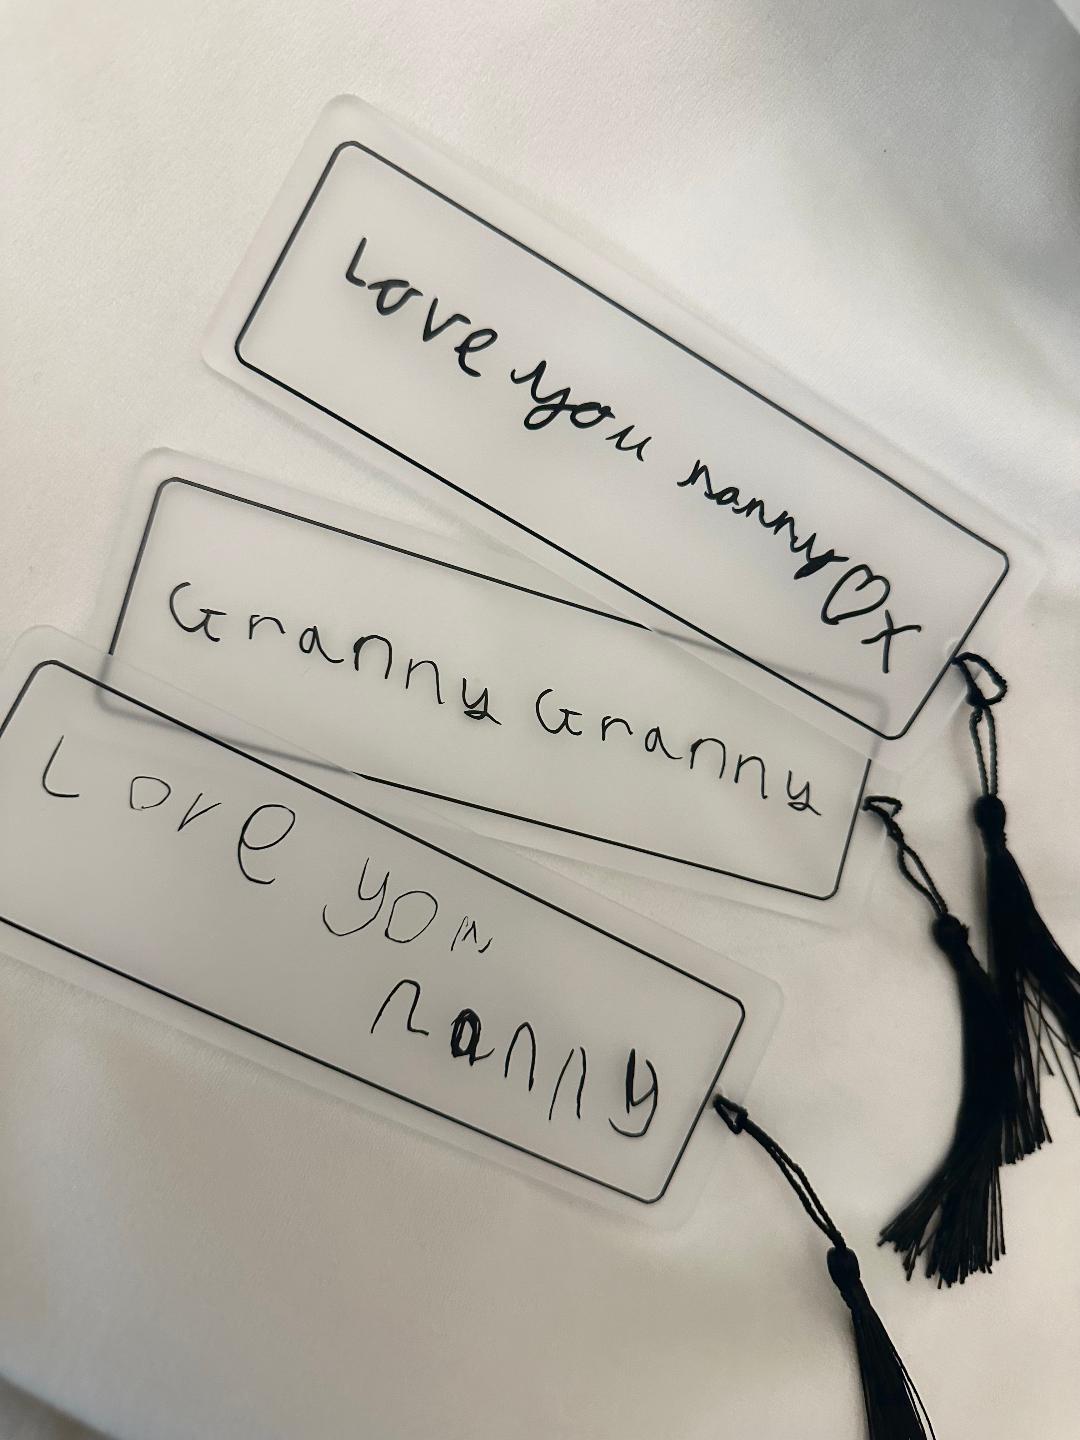 Love you nanny♡x
Granny Granny
Love you
nanny